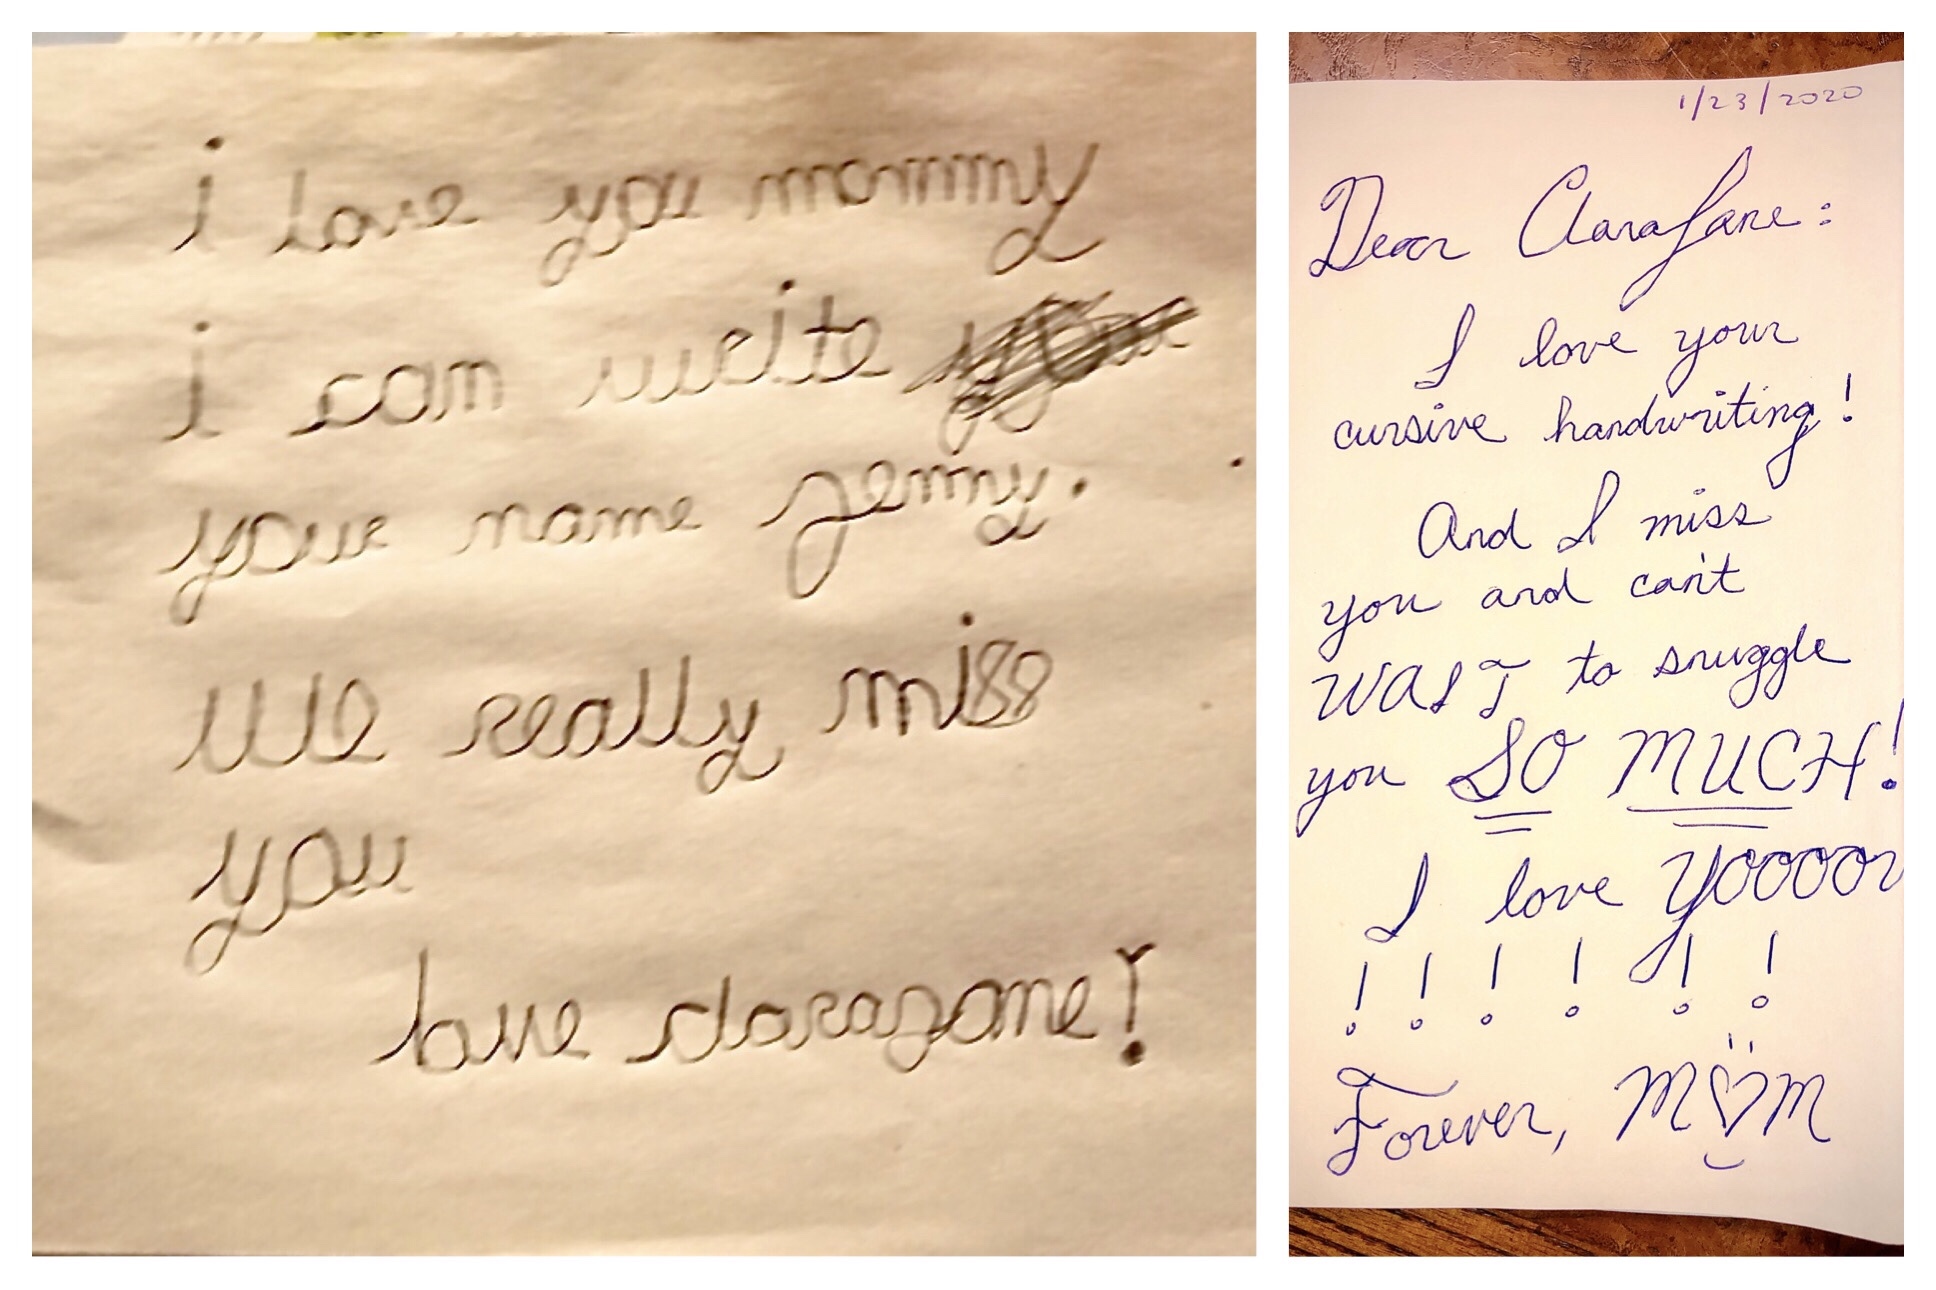 i love you mommy
i can write
your name jenny.
We really miss
you
love clarajane!
1/23/2020
Dear ClaraJane:
I love your
cursive handwriting!
And I miss
you and can't
WAIT to snuggle
you SO MUCH!
I love Yooooou
! ! ! ! ! !
Forever, M♡M